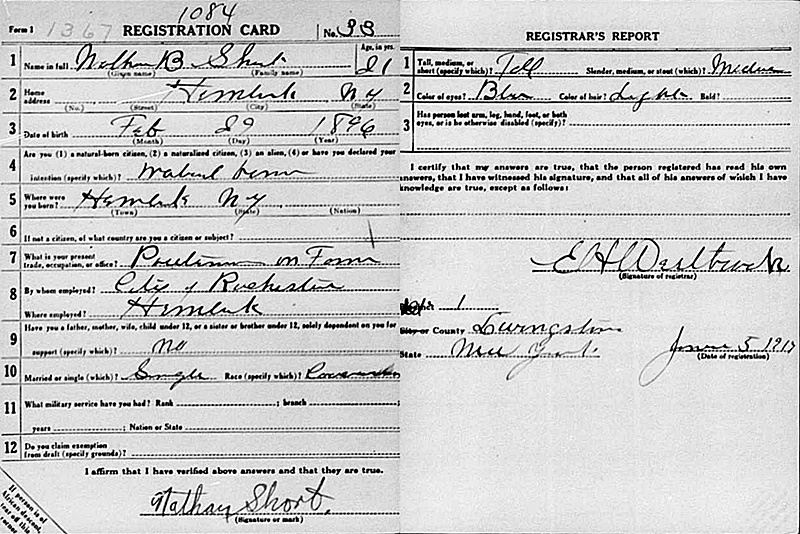 1084
Form 1 1367 REGISTRATION CARD No. 33
1 Name in full Nathan B. Short Age, in yrs. 21
(Given name) (Family name)
2 Home address Hemlock N.Y
(No.) (Street) (City) (State)
3 Date of birth Feb 29 1896
(Month) (Day) (Year)
4 Are you (1) a natural-born citizen, (2) a naturalized citizen, (3) an alien, (4) or have you declared your
intention (specify which)?
5 Where were you born? Hemlock N.Y
(Town) (State) (Nation)
6 If not a citizen, of what country are you a citizen or subject?
7 What is your present trade, occupation, or office? on Farm
8 By whom employed? City of Rochester
Where employed? Hemlock
9 Have you a father, mother, wife, child under 12, or a sister or brother under 12, solely dependent on you for
support (specify which)? no
10 Married or single (which)? Single Race (specify which)? Caucasian
11 What military service have you had? Rank ; branch
years ; Nation or State
12 Do you claim exemption from draft (specify grounds)?
I affirm that I have verified above answers and that they are true.
Nathan Short.
(Signature or mark)
If person is of
African descent,
tear off this
corner
REGISTRAR'S REPORT
1 Tall, medium, or short (specify which)? Tall Slender, medium, or stout (which)? Medium
2 Color of eyes? Blue Color of hair? Light Bald?
3 Has person lost arm, leg, hand, foot, or both eyes, or is he otherwise disabled (specify)?
I certify that my answers are true, that the person registered has read his own
answers, that I have witnessed his signature, and that all of his answers of which I have
knowledge are true, except as follows:
E H
(Signature of registrar)
1
City or County Livingston
State New York June 5 1917
(Date of registration)